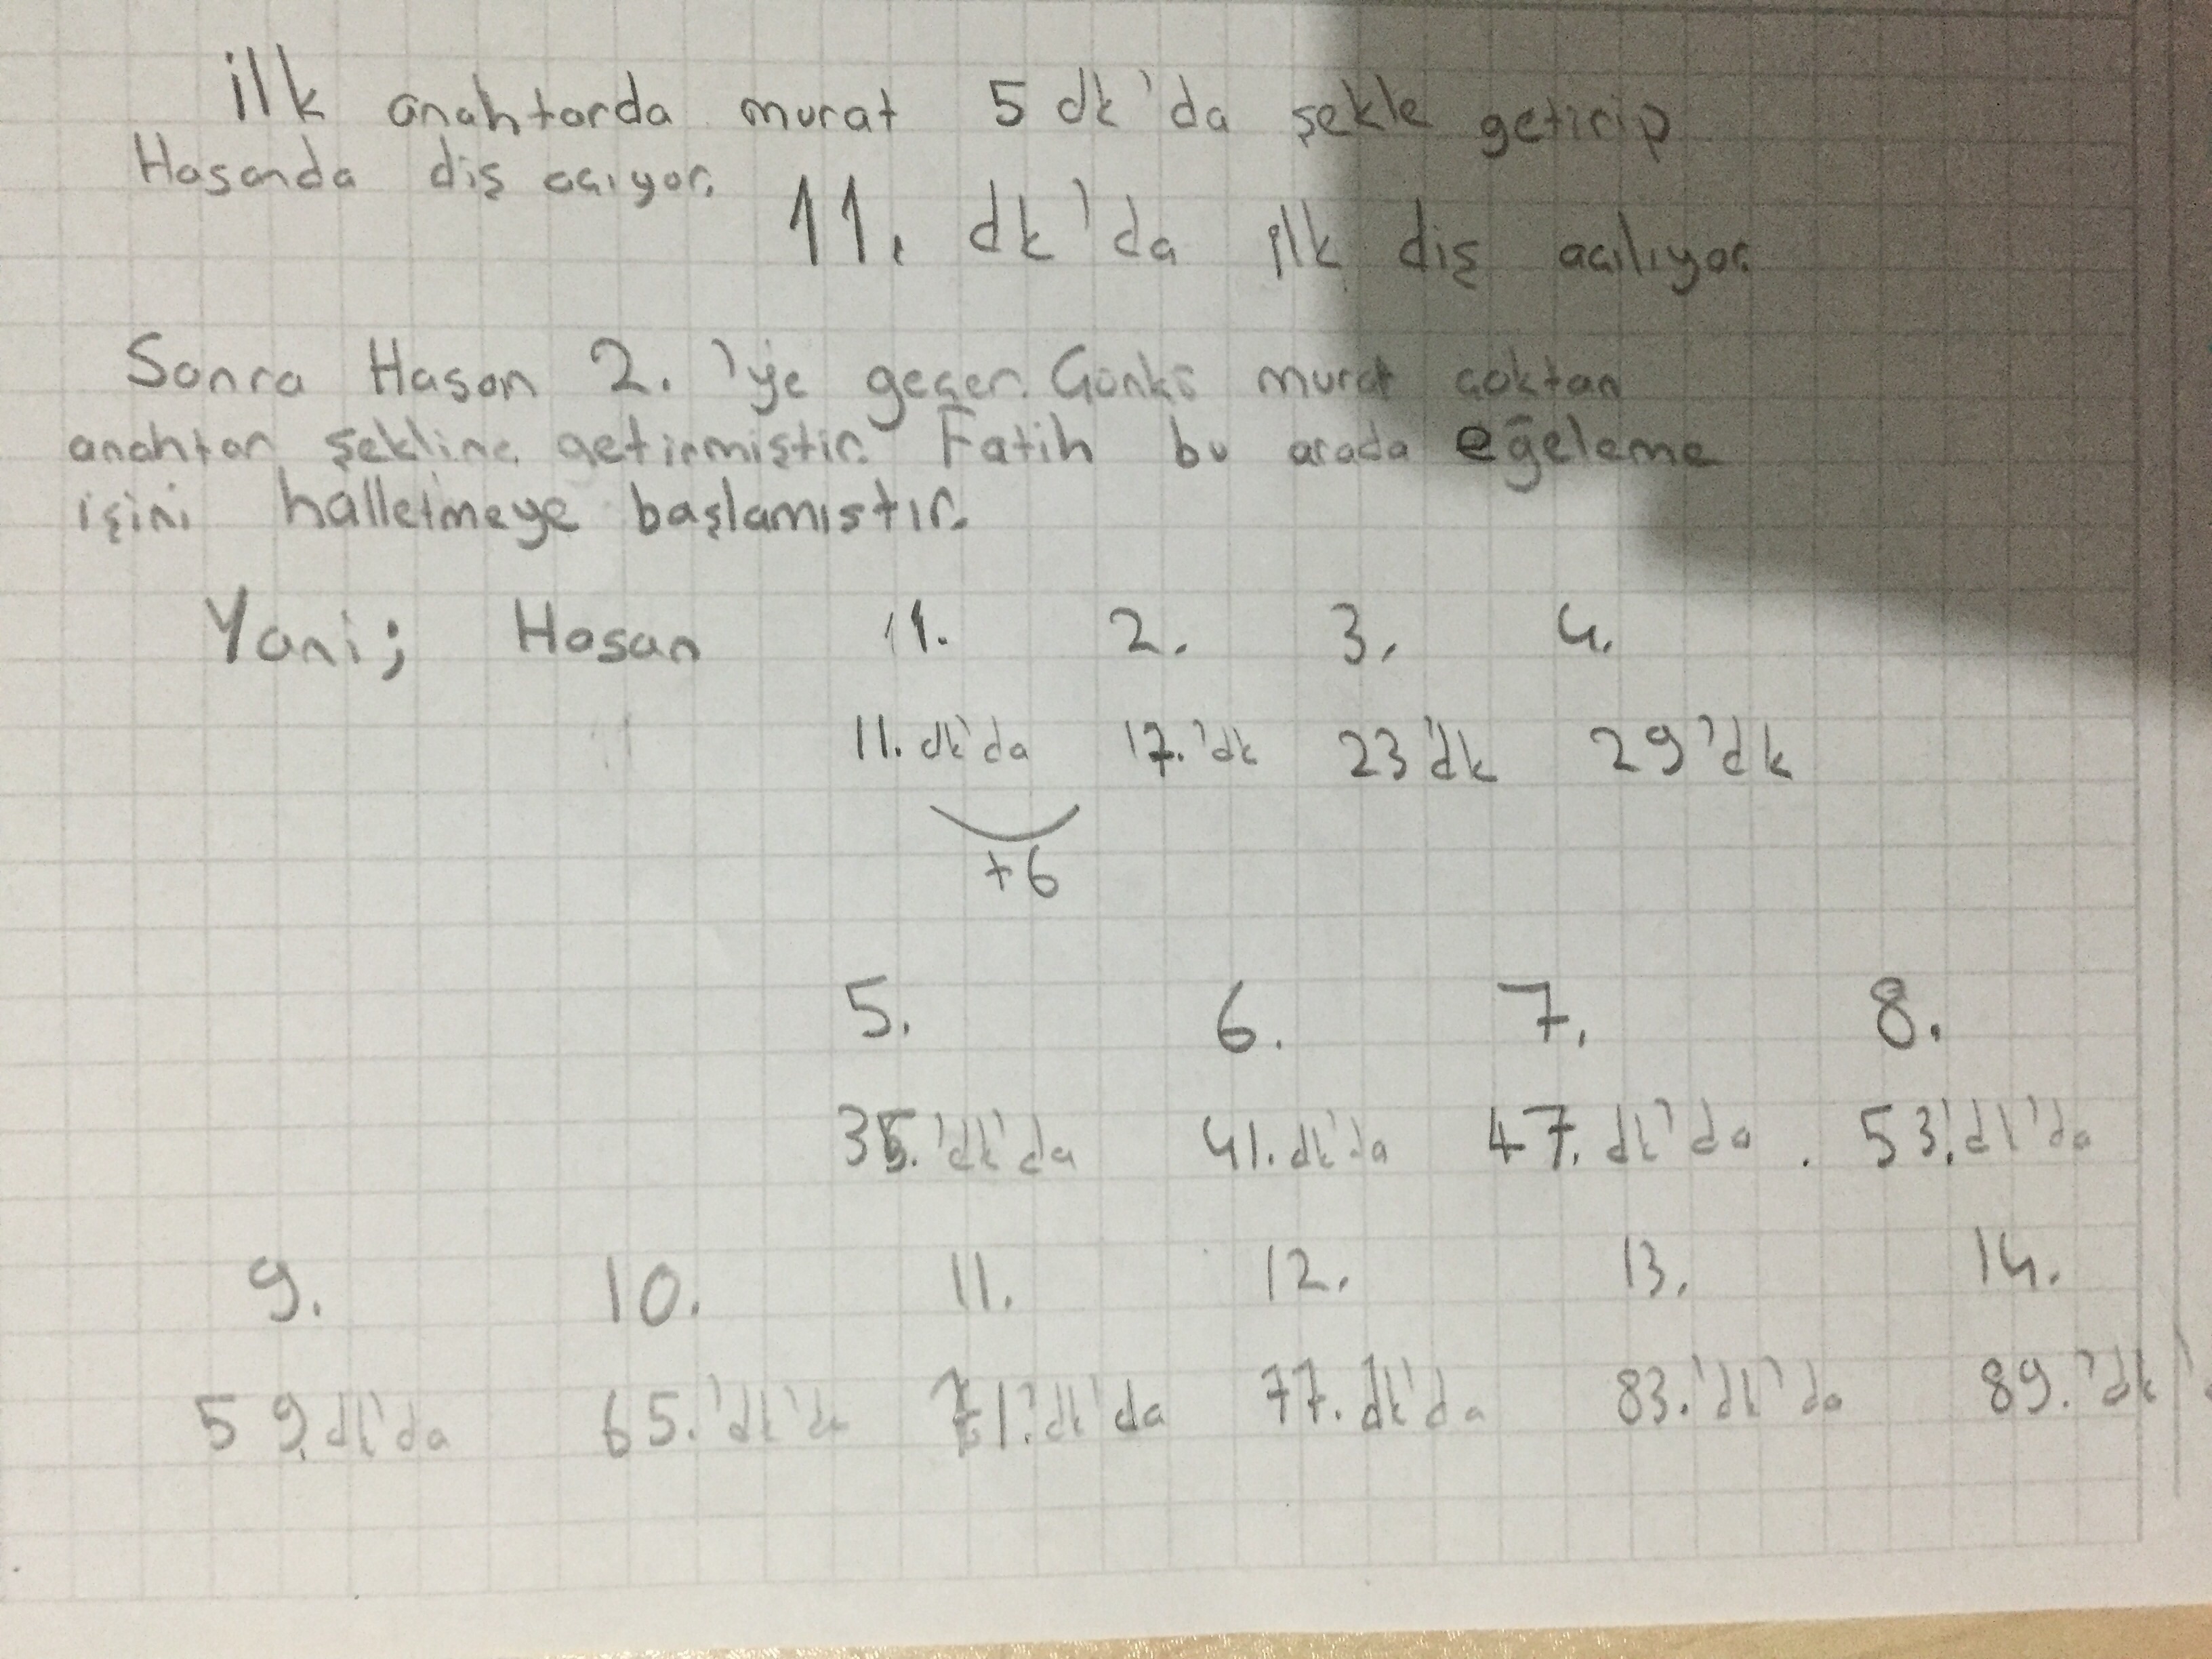 ilk anahtarda murat 5 dk'da şekle getirip
Hasanda diş açıyor.
11. dk'da ilk diş açılıyor.
Sonra Hasan 2. 'ye geçer. Çünkü murat çoktan
anahtar şekline getirmiştir. Fatih bu arada eğeleme
işini halletmeye başlamıştır.
Yani; Hasan 1. 2. 3. 4.
11. dk'da 17. 'dk 23 'dk 29 'dk
+6
5. 6. 7. 8.
35. 'dk'da 41. dk'da 47. dk'da 53. 'dk'da
9. 10. 11. 12. 13. 14.
59. dk'da 65. 'dk'da 71. 'dk'da 77. dk'da 83. 'dk'da 89. 'dk'